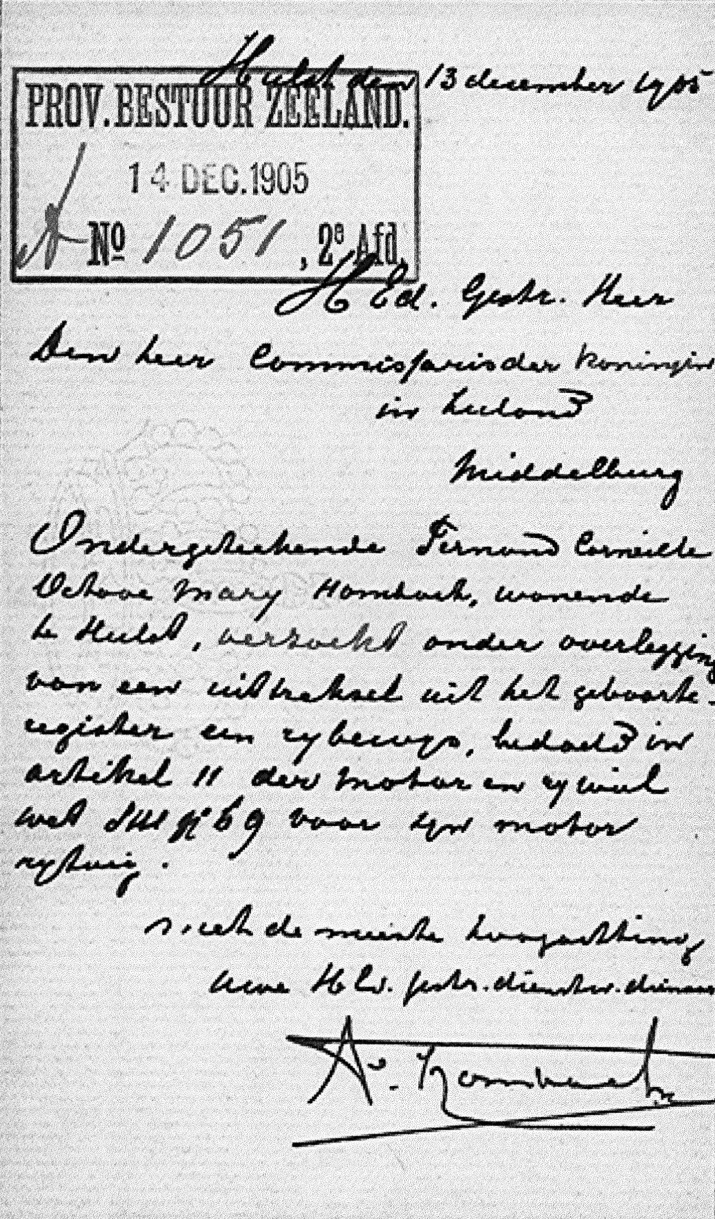 Hulst den 13 december 1905
PROV. BESTUUR ZEELAND.
14 DEC. 1905
A No 1051, 2e Afd.
H Ed. Gestr. Heer
Den heer Commissaris der Koningin
in Zeeland
Middelburg
Ondergeteekende Fernand Corneille
Octave Mary Hombach, wonende
te Hulst, verzoekt onder overlegging
van een uittreksel uit het geboorte-
register een rybewys, bedoeld in
artikel 11 der motor en rywiel
wet No 69 voor zyn motor
rytuig.
met de meeste hoogachting
Uwe H Ed. gestr. dienstw. dienaar
Hombach